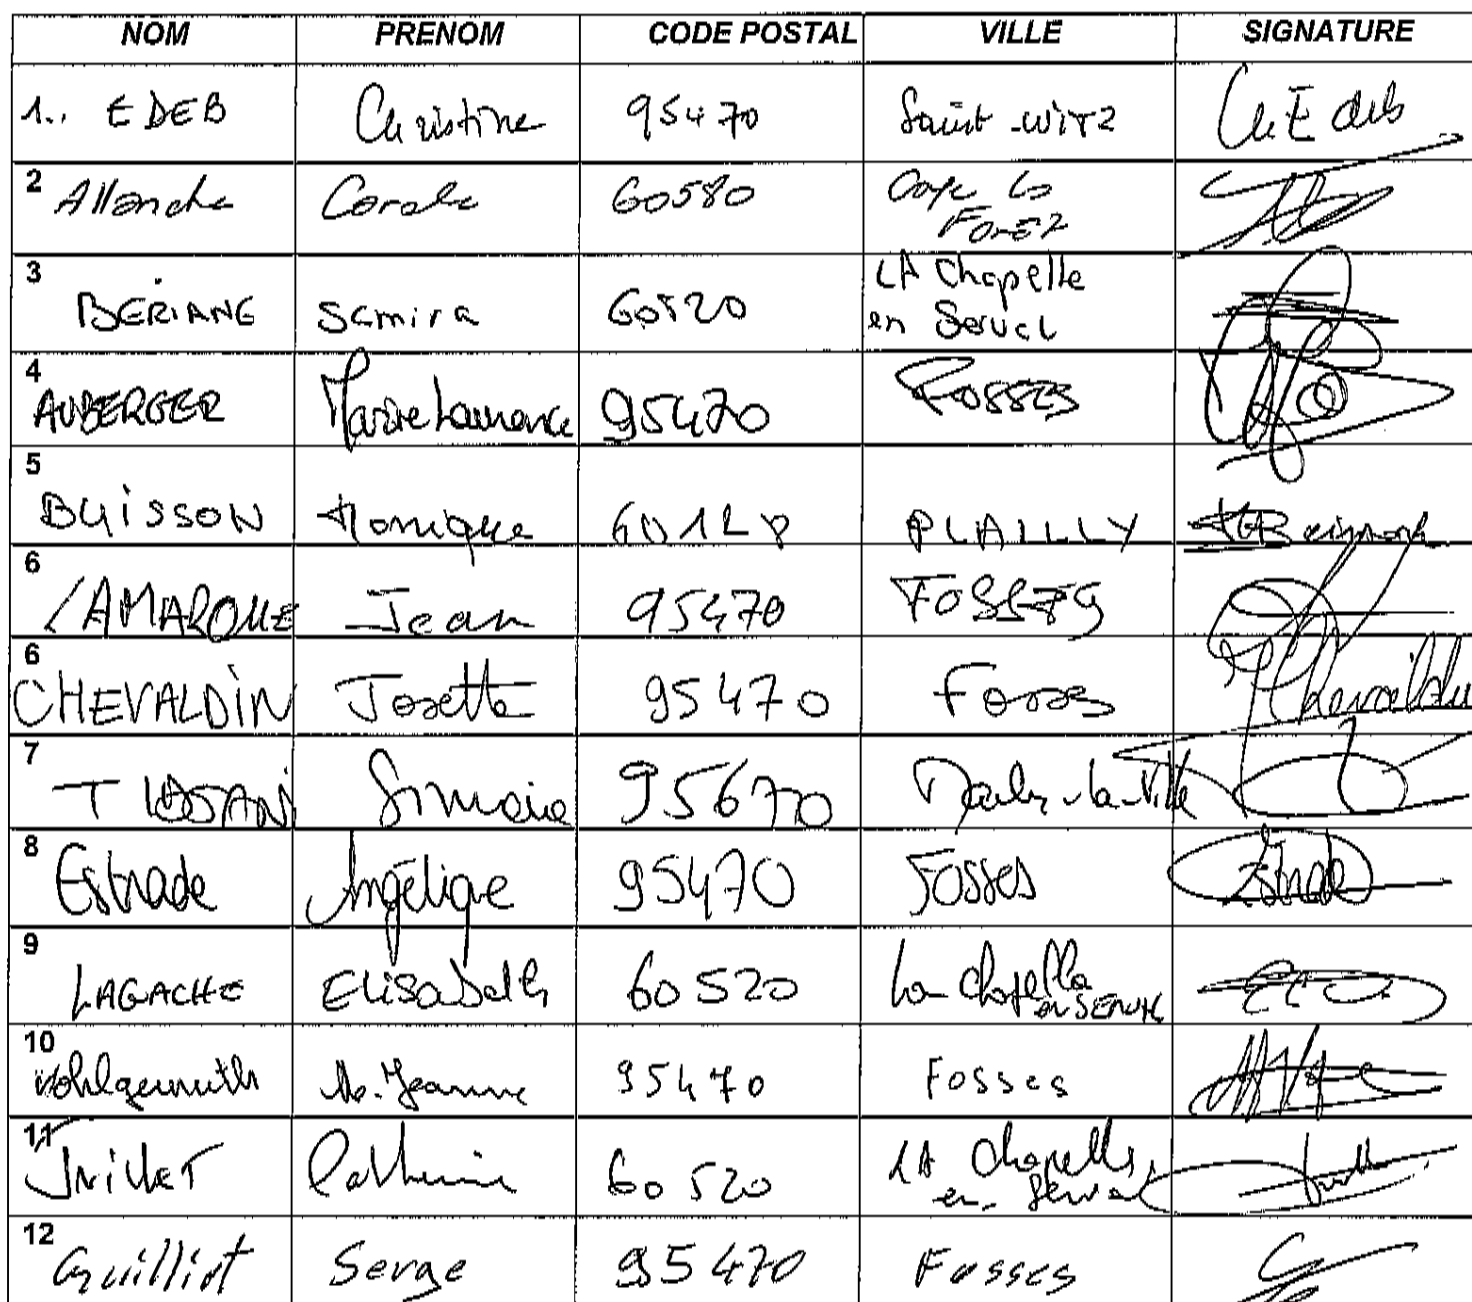 NOM PRENOM CODE POSTAL VILLE SIGNATURE
1.. EDEB Christine 95470 Saint-Witz Ch. Edeb
2 Allanche Carole 60580 Coye la
Foret
3 BERIANE Samira 60520 LA Chapelle
en Serval
4 AUBERGER Marie Laurence 95470 Fosses
5 BUISSON Monique 60128 PLAILLY
6 LAMARQUE Jean 95470 FOSSES
6 CHEVALDIN Josette 95470 Fosses Chevaldin
7 95670 Marly-la-Ville
8 Estrade Angélique 95470 Fosses Estrade
9 LAGACHE Elisabeth 60520 La Chapelle
en SERVAL
10 Wohlgemuth M. Jeanne 95470 Fosses
11 JuilleT Catherine 60520 LA Chapelle
en Serval
12 Guilliot Serge 95470 Fosses